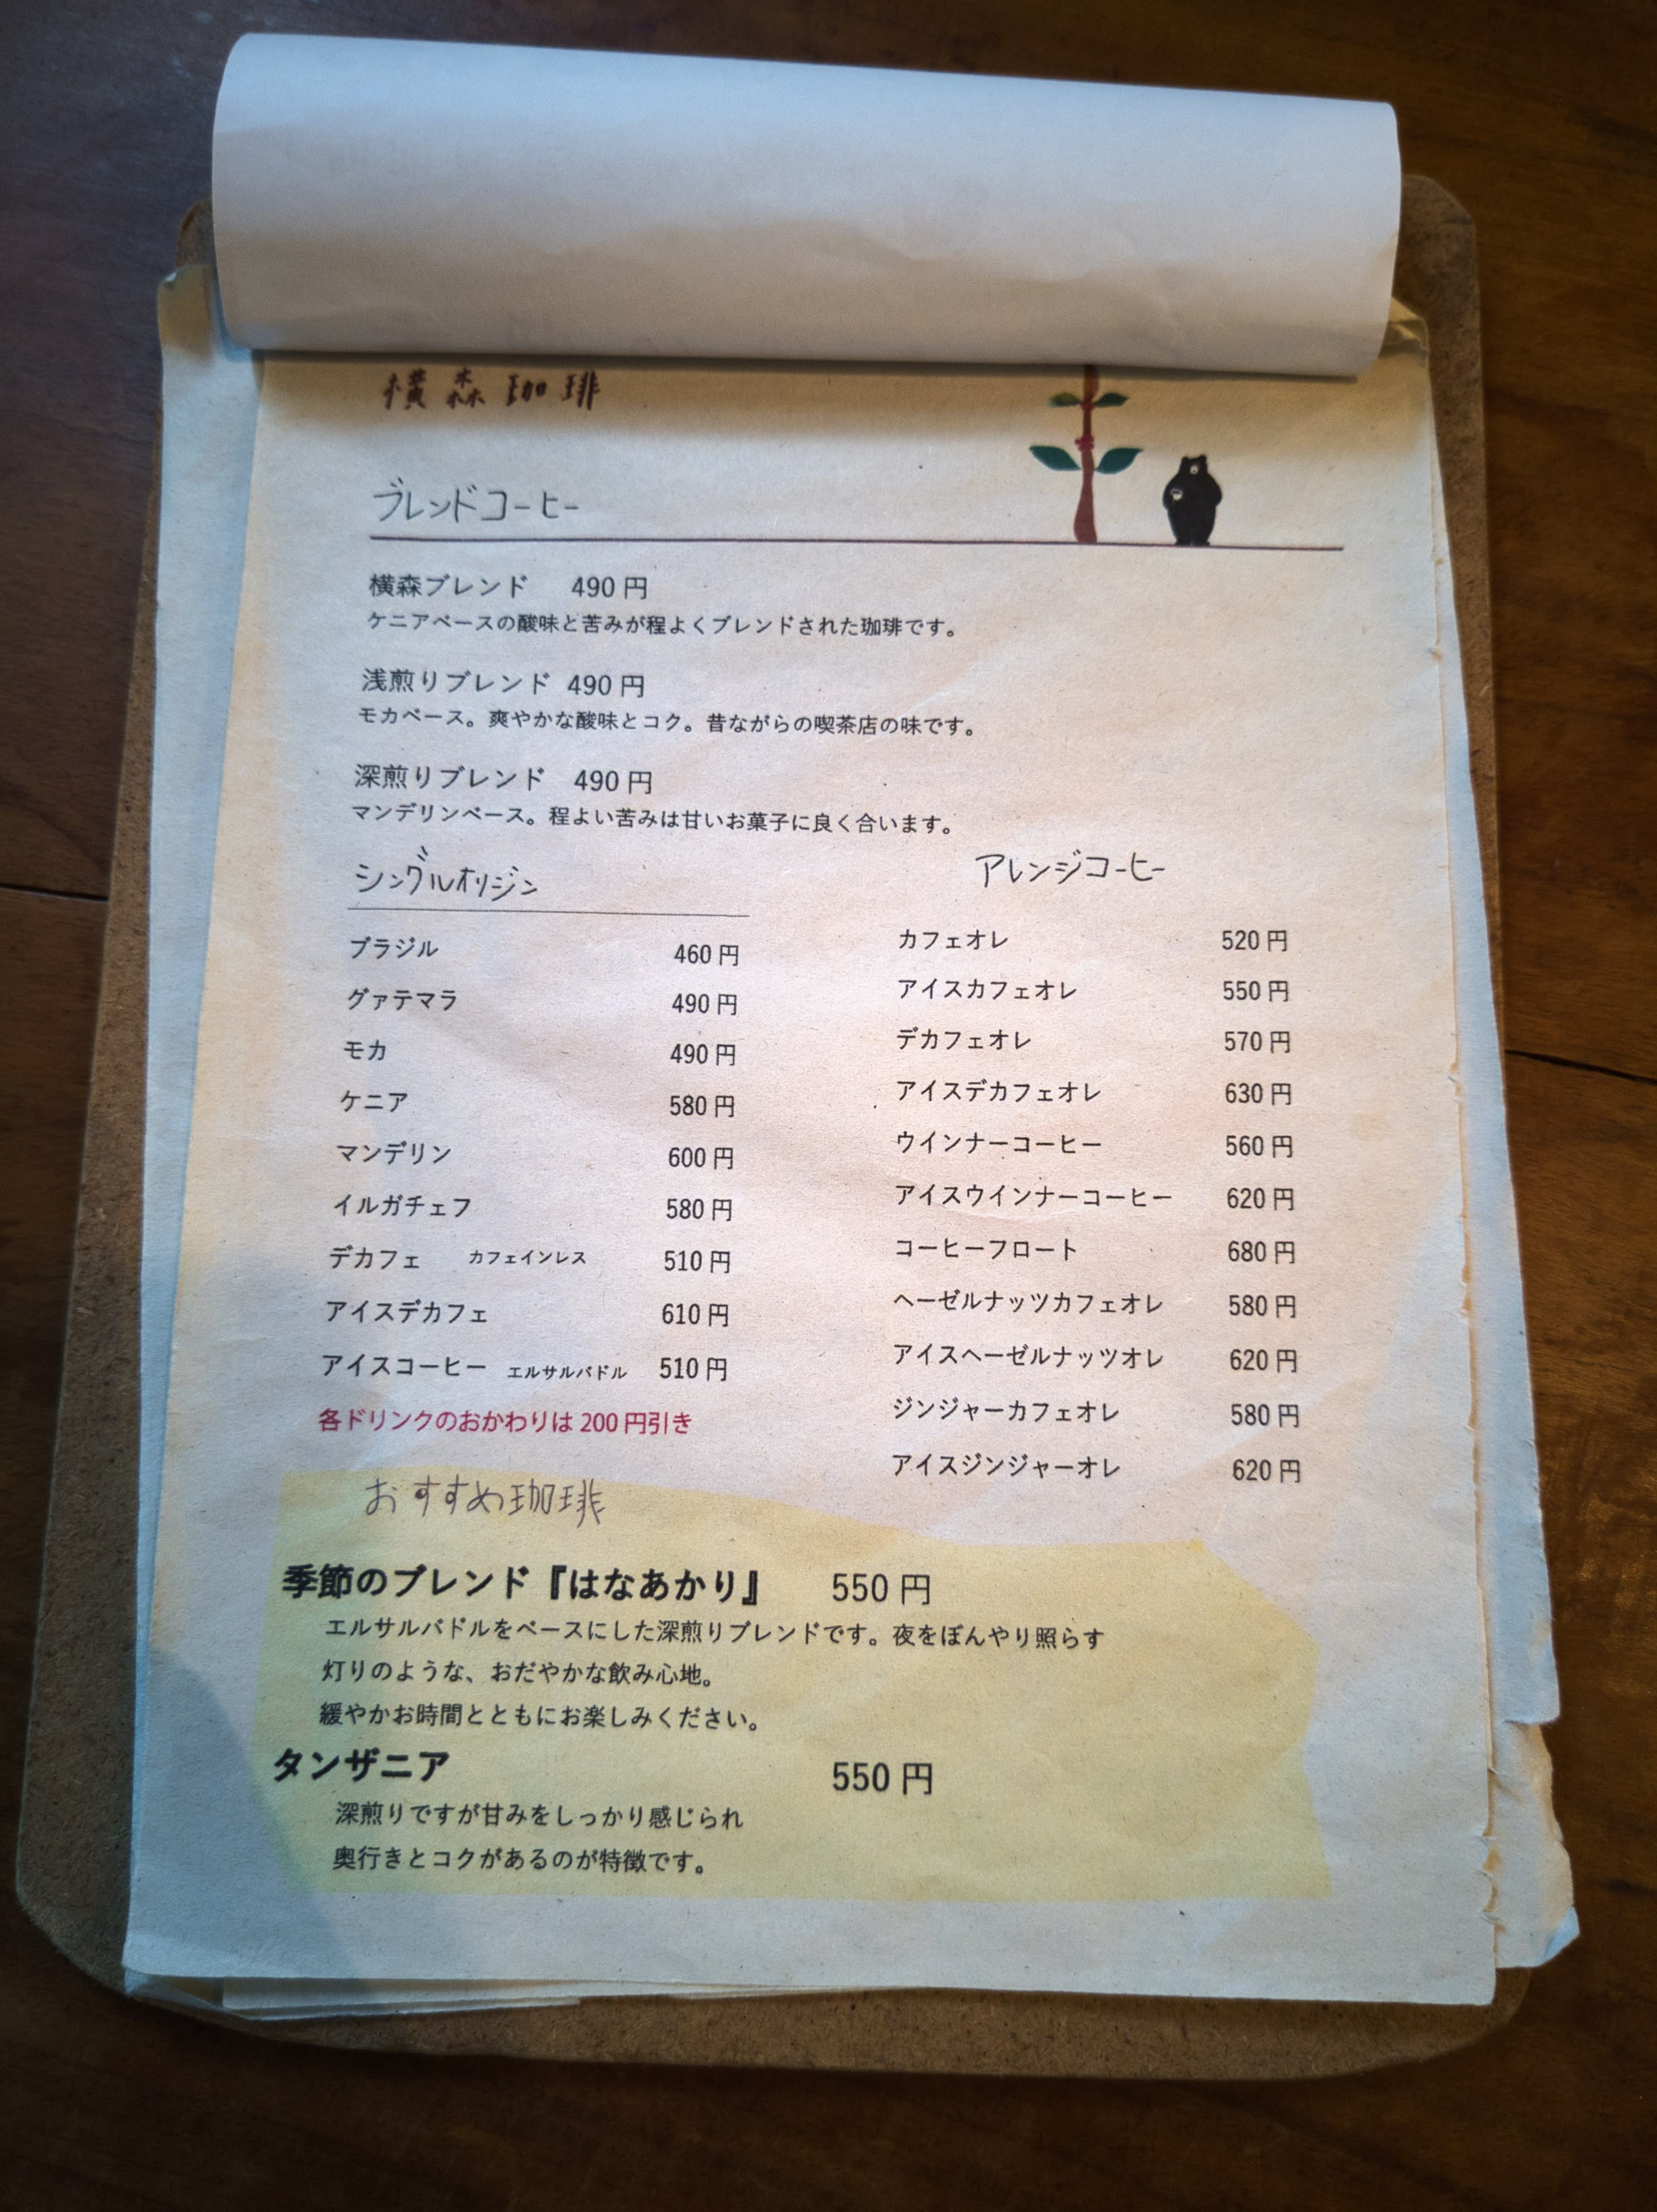 横森珈琲
ブレンドコーヒー
横森ブレンド 490円
ケニアベースの酸味と苦みが程よくブレンドされた珈琲です。
浅煎りブレンド 490円
モカベース。爽やかな酸味とコク。昔ながらの喫茶店の味です。
深煎りブレンド 490円
マンデリンベース。程よい苦みは甘いお菓子に良く合います。
シングルオリジン
ブラジル 460円
グァテマラ 490円
モカ 490円
ケニア 580円
マンデリン 600円
イルガチェフ 580円
デカフェ カフェインレス 510円
アイスデカフェ 610円
アイスコーヒー エルサルバドル 510円
各ドリンクのおかわりは200円引き
アレンジコーヒー
カフェオレ 520円
アイスカフェオレ 550円
デカフェオレ 570円
アイスデカフェオレ 630円
ウインナーコーヒー 560円
アイスウインナーコーヒー 620円
コーヒーフロート 680円
ヘーゼルナッツカフェオレ 580円
アイスヘーゼルナッツオレ 620円
ジンジャーカフェオレ 580円
アイスジンジャーオレ 620円
おすすめ珈琲
季節のブレンド『はなあかり』 550円
エルサルバドルをベースにした深煎りブレンドです。夜をぼんやり照らす
灯りのような、おだやかな飲み心地。
緩やかお時間とともにお楽しみください。
タンザニア 550円
深煎りですが甘みをしっかり感じられ
奥行きとコクがあるのが特徴です。